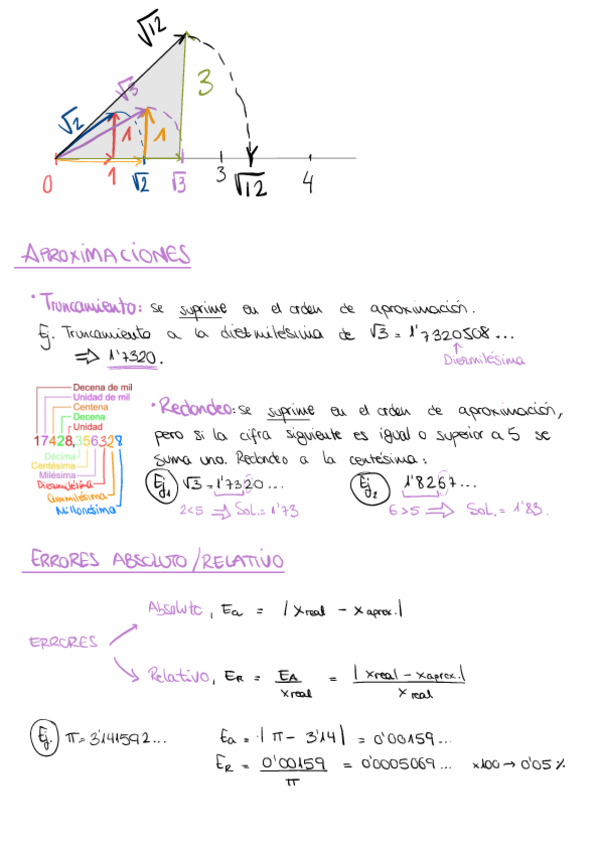 √12
√3
3
√2
1
1
0
1
√2
√3
3
√12
4
APROXIMACIONES
• Truncamiento: se suprime en el orden de aproximación.
Ej. Truncamiento a la diezmilésima de √3 = 1'7320508...
⇒ 1'7320.
Diezmilésima
Decena de mil
Unidad de mil
Centena
Decena
Unidad
17428,356328
Décima
Centésima
Milésima
Diezmilésima
Cienmilésima
Millonésima
• Redondeo: se suprime en el orden de aproximación,
pero si la cifra siguiente es igual o superior a 5 se
suma uno. Redondeo a la centésima:
Ej1 √3 = 1'7320...
2<5 ⇒ Sol. = 1'73
Ej2 1'8267...
6>5 ⇒ Sol. = 1'83.
ERRORES ABSOLUTO/RELATIVO
Absoluto, Ea = |x real - x aprox.|
ERRORES
Relativo, ER = EA / x real = |x real - x aprox.| / x real
Ej. π = 3'141592... Ea = |π - 3'14| = 0'00159...
ER = 0'00159 / π = 0'0005069... x100 → 0'05 %